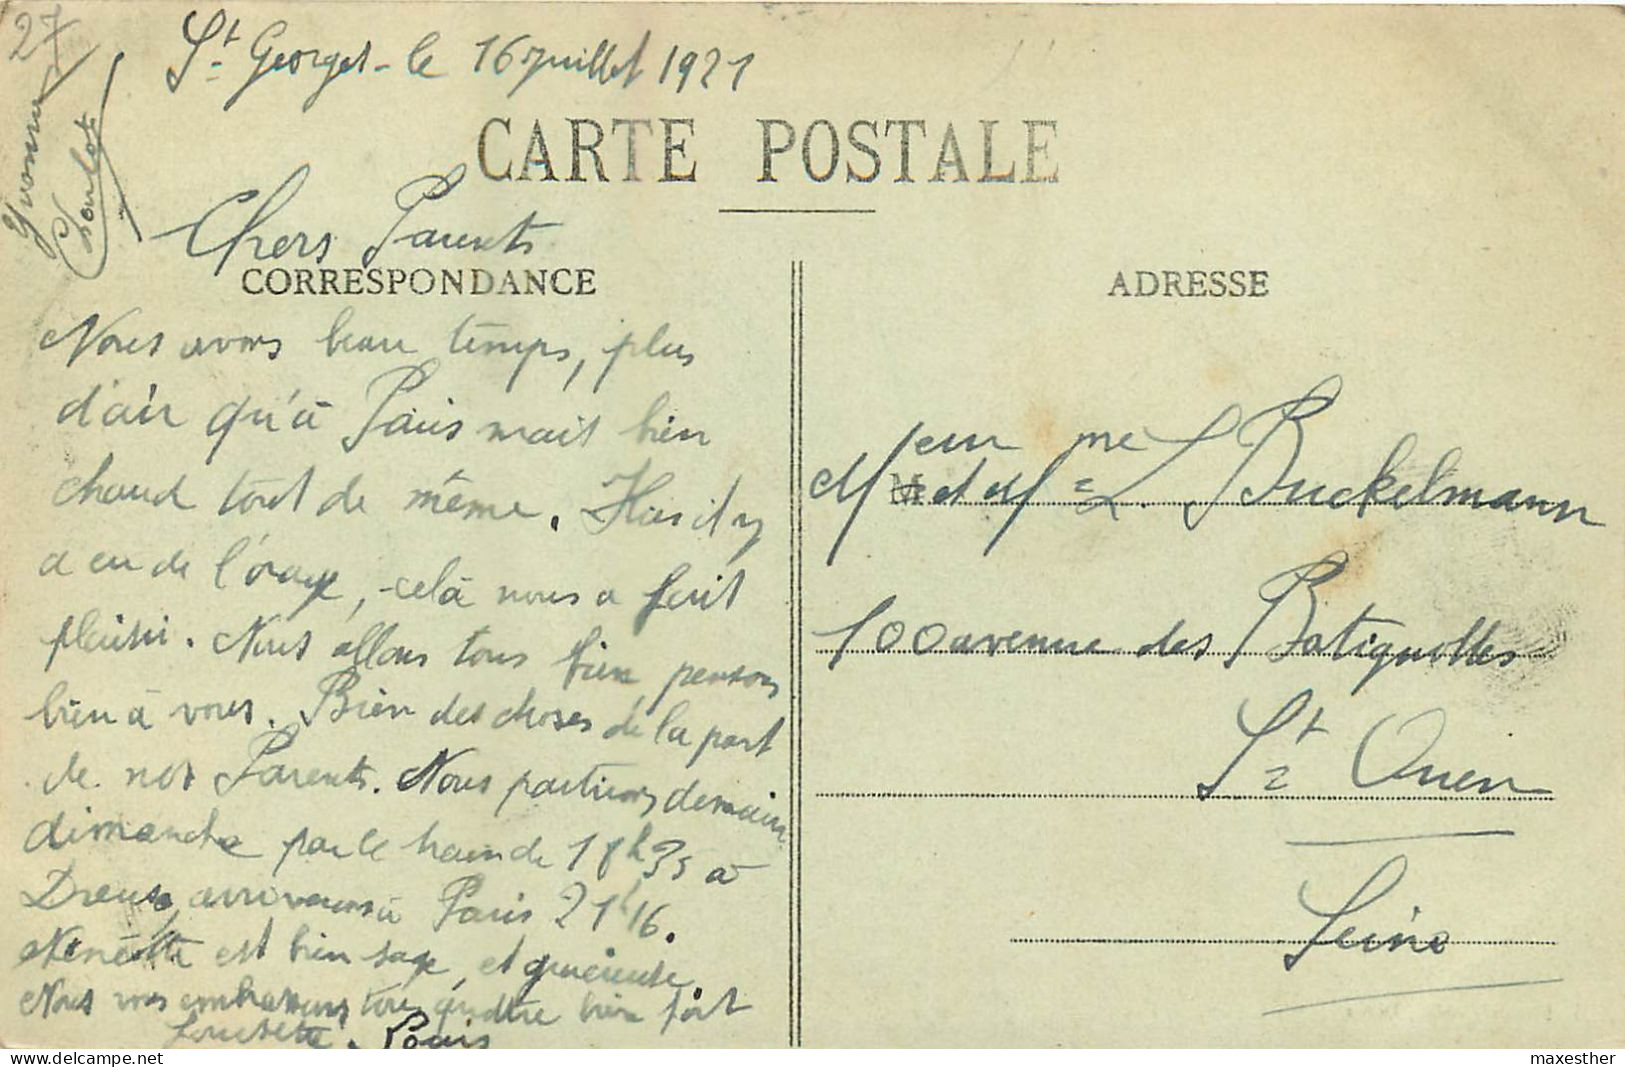 27
St Georges - le 16 Juillet 1921
CARTE POSTALE
Yvonne
Chers Parents
CORRESPONDANCE
Nous avons beau temps, plus
d'air qu'à Paris mais bien
chaud tout de même. Hier il y
a eu de l'orage, celà nous a fait
plaisir. Nous allons tous bien, pensons
bien à vous. Bien des choses de la part
de nos Parents. Nous partirons demain
dimanche par le train de 18h35 à
Dreux, arriverons à Paris 21h16.
Nénette est bien sage, et
Nous vous embrassons tous quatre bien fort
Louisette. Louis
ADRESSE
M eur et Mme L. Buckelmann
100 avenue des Batignolles
St Ouen
Seine
maxesther
delcampe.net